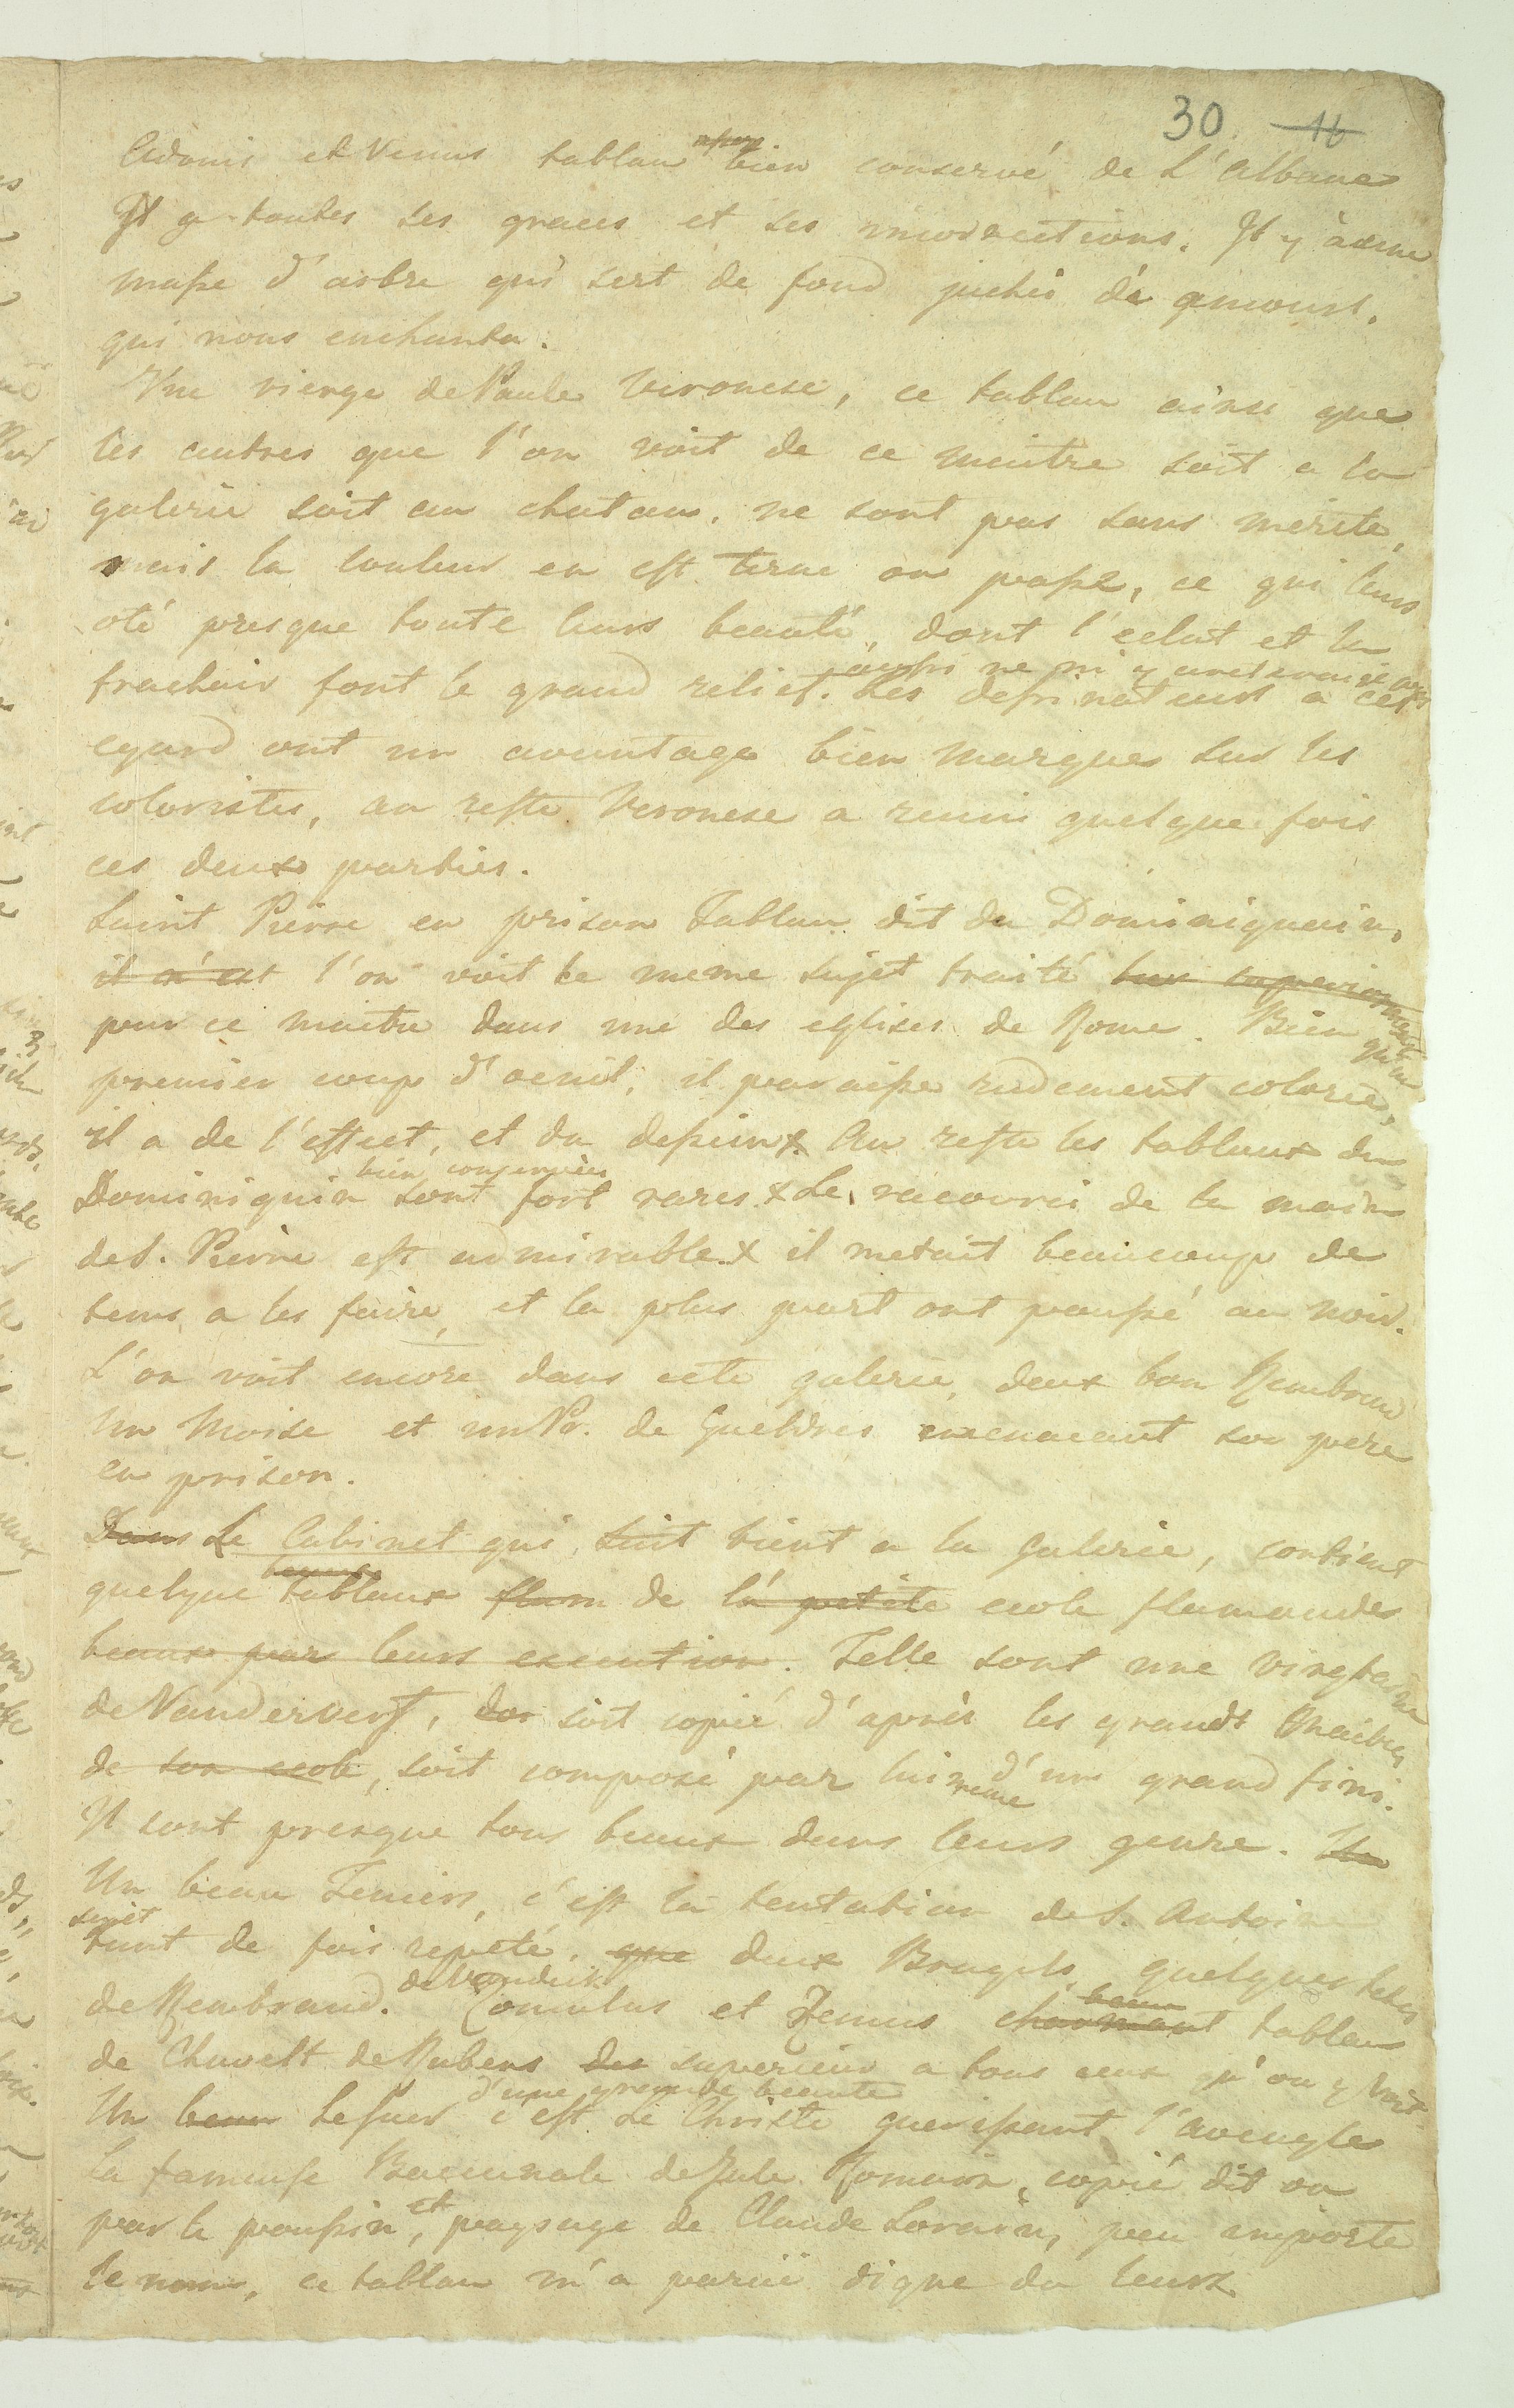 30. 16
Adonis et Venus tablau bien conservé de L'albane
Il y a toutes ses graces et ses incorrections. Il y à une
masse d'arbre qui sert de fond juchés de amours.
qui nous enchanta.
Une vierge de Paule Veronese, ce tablau ainsi que
les autres que l'on voit de ce meitre soit a la
galerie soit au chatau, ne sont pas sans merite,
mais la couleur en est terne ou passé, ce qui leurs
oté presque toute leurs beauté, dont l'eclat et la
aussi ne m'y areterai je pas
fracheur font le grand relief. Les dessinateurs a cet
egard ont un avantage bien marques sur les
coloristes, au reste Veronese a reuni quelque fois
ces deux parties.
Saint Pierre en prison Tablau dit du Dominiquain,
il n'est l'on voit le meme sujet traité
par ce maitre dans une des eglises de Rome. Bien qu'au
premier coup d'oeuil, il paraisse rudement colorié,
il a de l'effect, et du dessein x. Au reste les tablaux du
bien conservées
Dominiquin sont fort rares. x Le racourci de la main
de S. Pierre est admirable. x il metait beaucoup de
tems a les faire, et la plus part ont poussé au noir.
L'on voit encore dans cete galerie, deux bon Rembrand
Un Moise et un Pr. de Gueldres menacant son pere
en prison.
Dans Le Cabinet qui suit tient a la Galerie, contient
beaux
quelque tablaux flam de la petite ecole flamandes
beaux par leurs execution. Telle sont une vingtaine
de Vanderverf, soit copié d'après les grands Maitres
de son ecole, soit composé par lui meme d'un grand fini.
Il sont presque tous beaux dans leurs genre. Un
Un beau Teniers, c'est la tentation de S. Antoine
sujet
tant de fois repeté. que deux Brugels, quelques tetes
de Vandick
de Rembrand. Romulus et Remus charmant beau tablau
de Chevelt de Rubens des superieur a tous ceux qu'on y voit.
d'une grande beauté
Un beau Lesueur c'est Le Christe guerissant l'aveugle
La fameuse Baccanale de Jule Romain, copié dit on
par le poussin, et paysage de Claude Lorain, peu importe
le nom, ce tablau m'a parüe digne du leurs.